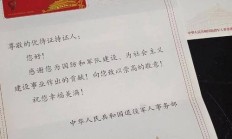 尊敬的优待证持证人：
您好！
感谢您为国防和军队建设、为社会主义
建设事业作出的贡献！向您致以崇高的敬意！
祝您幸福美满！
中华人民共和国退役军人事务部